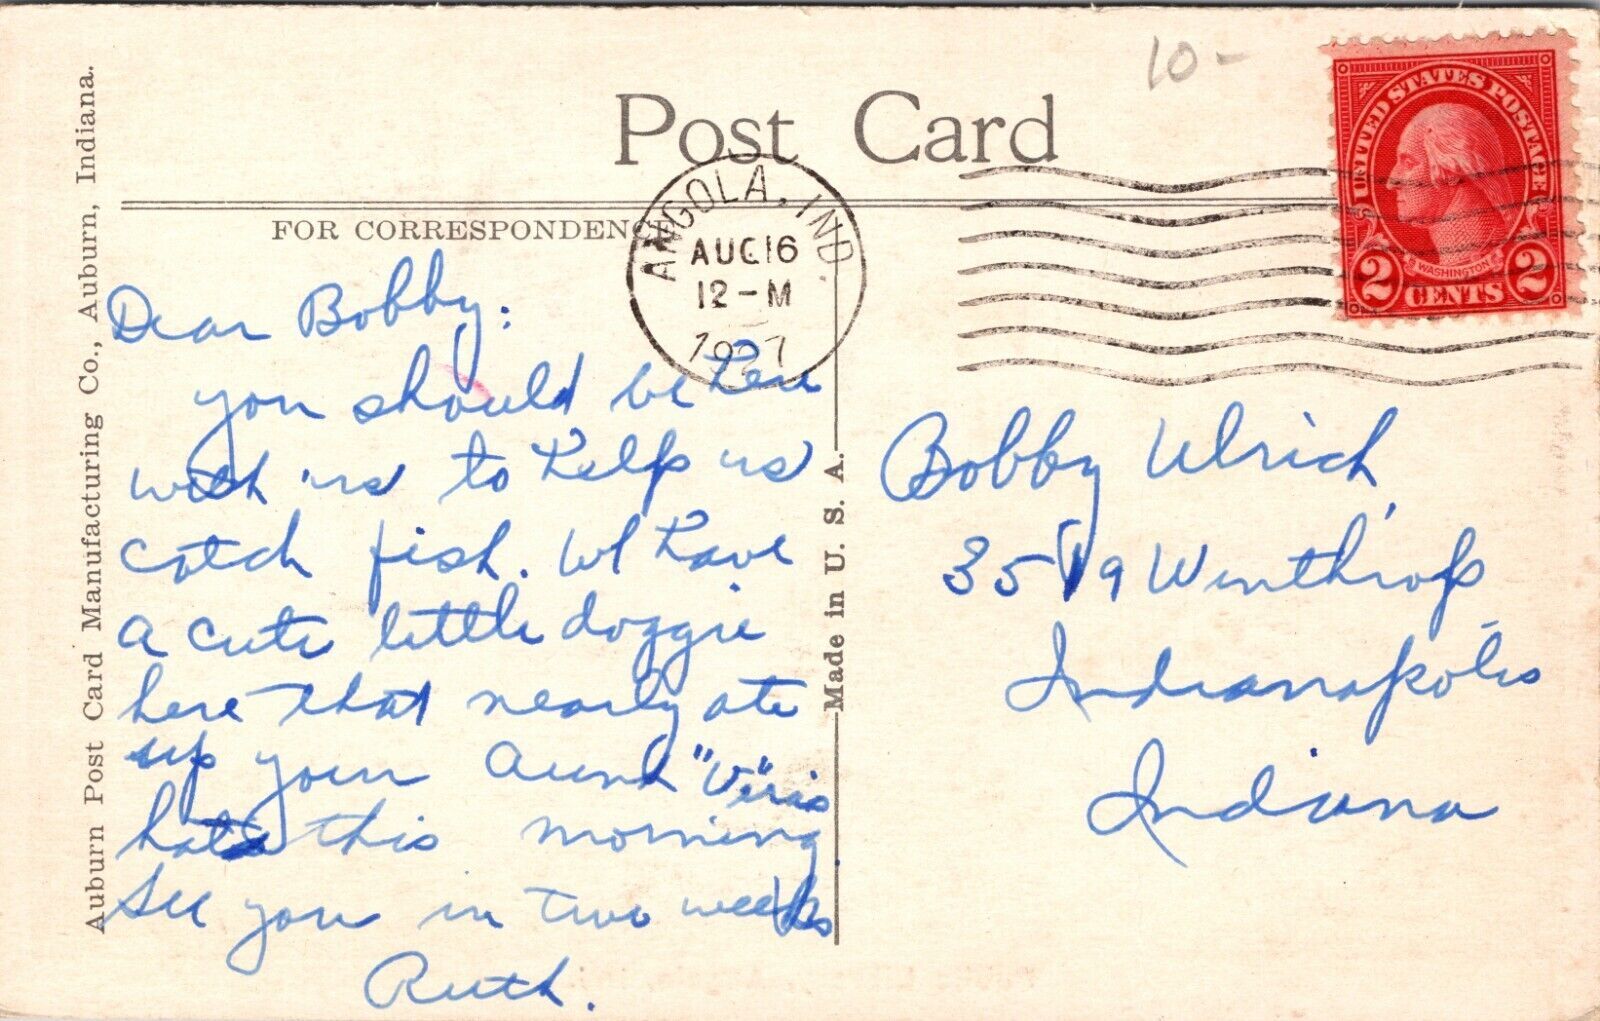 10-
Post Card
UNITED STATES POSTAGE
WASHINGTON
2 CENTS 2
ANGOLA, IND.
AUG 16
12-M
1927
FOR CORRESPONDENCE
Auburn Post Card Manufacturing Co., Auburn, Indiana.
Made in U. S. A.
Dear Bobby:
you should be here
with us to help us
catch fish. We have
a cute little doggie
here that nearly ate
up your Aunt "Ve"ra's
hat this morning.
See you in two weeks
Ruth.
Bobby Ulrich,
3519 Winthrop
Indianapolis
Indiana